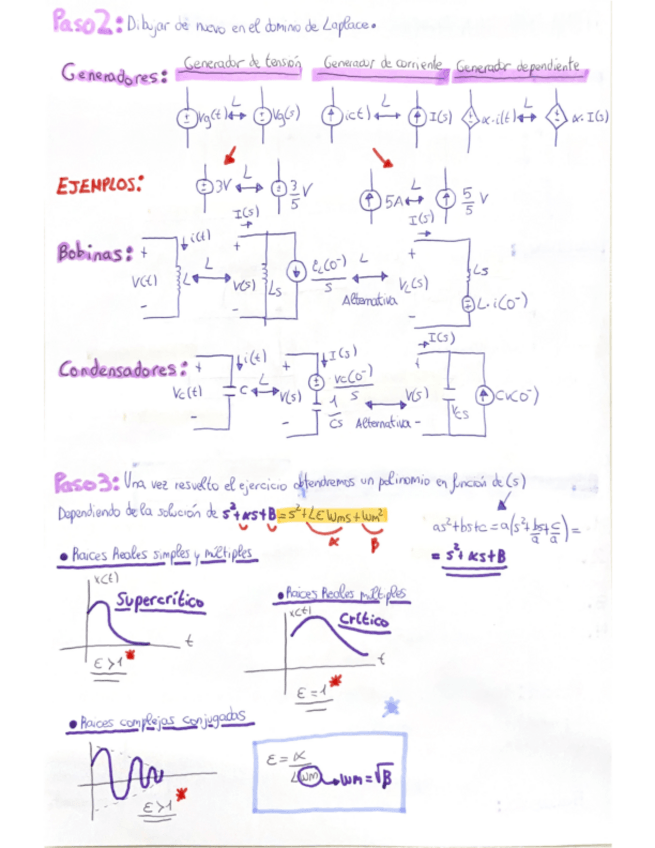 Paso 2: Dibujar de nuevo en el domino de Laplace.
Generador de tensión Generador de corriente Generador dependiente
Generadores:
Vg(t) L Vg(s) i(t) L I(s) α·i(t) L α·I(s)
EJEMPLOS: 3V L 3/5 V 5A L 5/5 V
I(s) I(s)
Bobinas: + i(t) + +
V(t) L L V(s) Ls iL(0⁻)/s L VL(s) Ls
Alternativa L·i(0⁻)
- - -
I(s)
Condensadores: + i(t) L + I(s) +
Vc(t) C V(s) vc(0⁻)/s V(s) CVc(0⁻)
- - 1/Cs Alternativa - 1/Cs
Paso 3: Una vez resuelto el ejercicio obtendremos un polinomio en función de (s)
Dependiendo de la solución de s²+αs+B = s²+2ξWms+Wm²
α β
as²+bs+c = a(s²+bs/a+c/a) =
= s²+αs+B
• Raices Reales simples y múltiples
x(t) Supercrítico
t
ε>1 *
• Raices Reales múltiples
x(t) Crítico
t
ε=1 *
• Raices complejas conjugadas
ε>1 *
ε = α/2Wm → Wm = √B